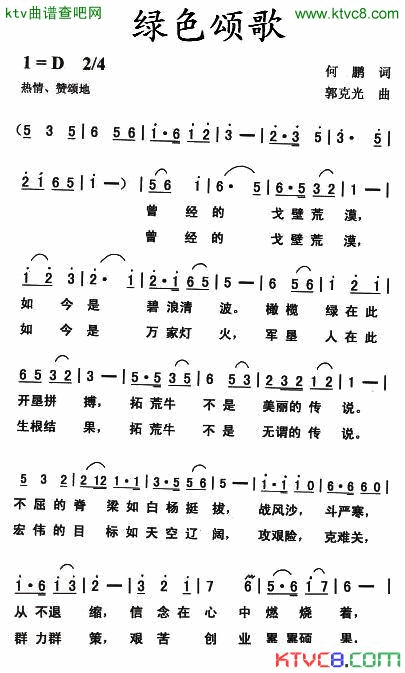 ktv曲谱查吧网
www.ktvc8.com
绿色颂歌
1=D 2/4
何鹏 词
热情、赞颂地
郭克光 曲
(5 3 5 | 6 5 6 | 1·6 1 2 | 3 — | 2·3 5 | 3·5
2 1 6 5 | 1 —) | 5 6 1 | 6· 5 | 6·5 3 2 | 3 — |
曾 经 的 戈 壁 荒 漠,
曾 经 的 戈 壁 荒 漠,
1 2 3 | 2· 1 | 2·1 6 5 | 6 — | 6 5 6 | 1 2 1 |
如 今 是 碧 浪 清 波。 橄 榄 绿 在 此
如 今 是 万 家 灯 火, 军 垦 人 在 此
6 5 3 2 | 3 — | 5·3 5 1 | 6 5 6 | 2 3 5 2 | 1 — |
开 垦 拼 搏, 拓 荒 牛 不 是 美丽的 传 说。
生 根 结 果, 拓 荒 牛 不 是 无谓的 传 说。
3 5 3 2 | 2 12 1·1 | 3·5 5 5 | 5 — | 1·1 1 | 6·6 6 0 |
不 屈 的 脊 梁 如 白 杨 挺 拔, 战风沙, 斗严寒,
宏 伟 的 目 标 如 天 空 辽 阔, 攻艰险, 克难关,
1·6 1 3 | 2 — | 3 5 2 | 1· 2 | 7 6 | 5·6 1 7 | 6 — |
从 不 退 缩, 信 念 在 心 中 燃 烧 着,
群 力 群 策, 艰 苦 创 业 累 累 硕 果,
KTVC8.com